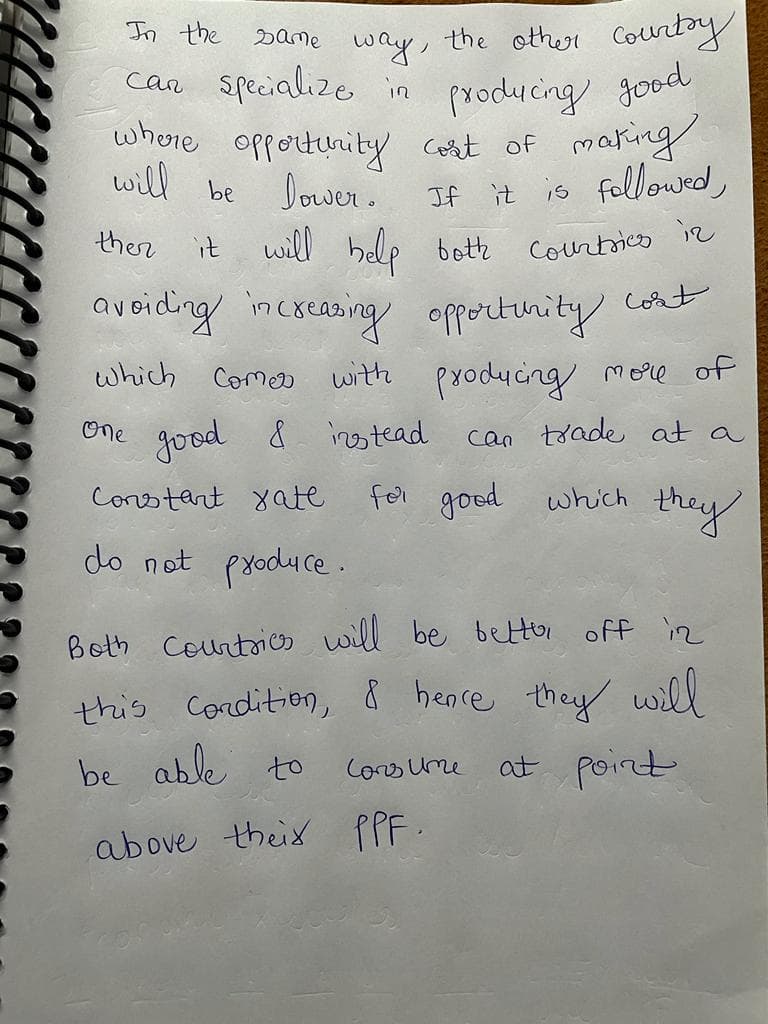 In the same way, the other country
can specialize in producing good
where opportunity cost of making
will be lower. If it is followed,
then it will help both countries in
avoiding increasing opportunity cost
which comes with producing more of
one good & instead can trade at a
constant rate for good which they
do not produce.
Both countries will be better off in
this condition, & hence they will
be able to consume at point
above their PPF.